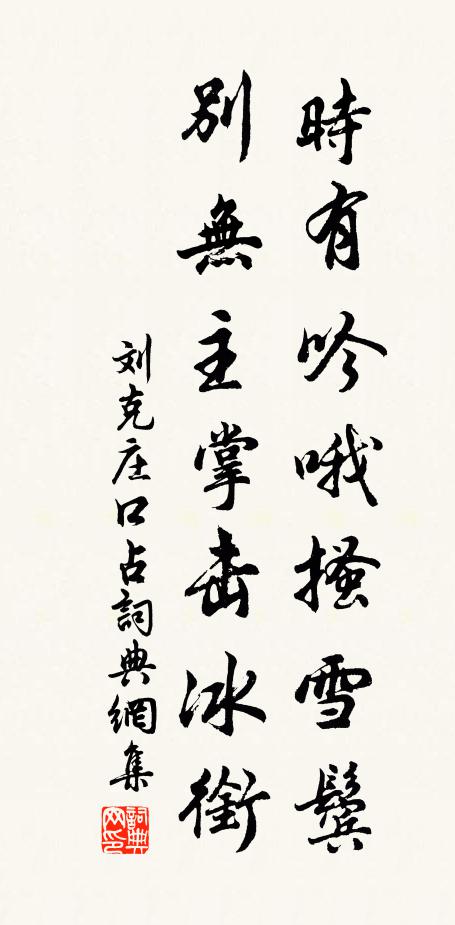 時有吟哦搔雪鬢
別無主掌击冰銜
刘克庄口占詞典網集
詞典網印